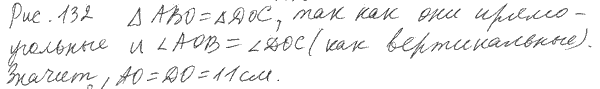 Рис. 132 △ABO = △DOC, так как они прямо-
угольные и ∠AOB = ∠DOC (как вертикальные).
Значит, AO = DO = 11 см.